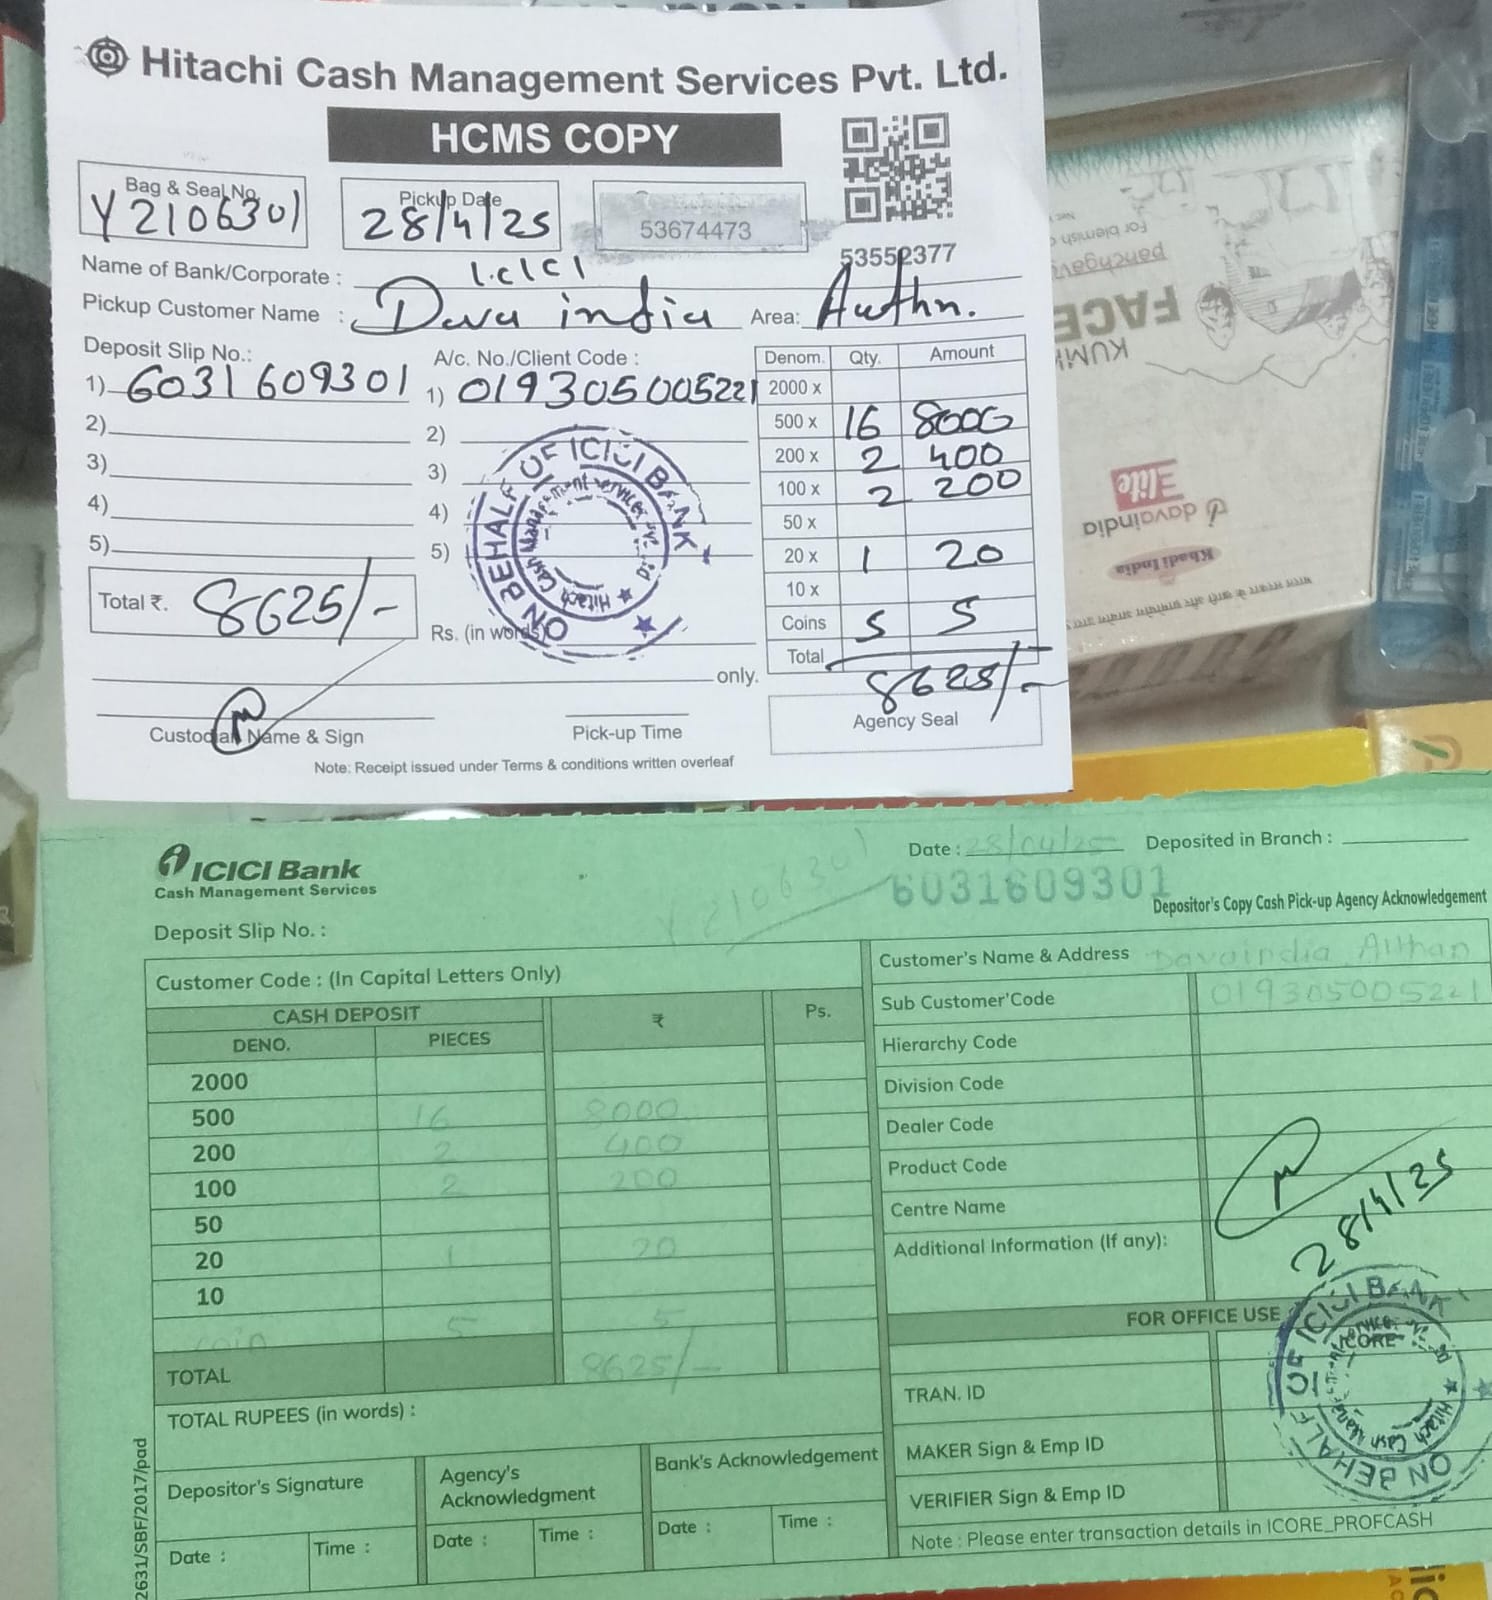 Hitachi Cash Management Services Pvt. Ltd.
HCMS COPY
Bag & Seal No.
Y2106301
Pickup Date
28/4/25
53674473
53552377
Name of Bank/Corporate : I.CICI
Pickup Customer Name : Dava india Area: Althn.
Deposit Slip No.:
A/c. No./Client Code :
1) 6031609301
1) 019305005221
2)
2)
3)
3)
4)
4)
5)
5)
Denom. Qty. Amount
2000 x
500 x 16 8000
200 x 2 400
100 x 2 200
50 x
20 x 1 20
10 x
Coins 5 5
Total 8625/-
Total ₹. 8625/-
Rs. (in words)
only.
ON BEHALF OF ICICI BANK
Hitachi Cash Management Services Pvt. Ltd
Custodian Name & Sign
Pick-up Time
Agency Seal
Note: Receipt issued under Terms & conditions written overleaf
FACE
panchgavya
For blemish
davaindia
Elite
Khadi India
ICICI Bank
Cash Management Services
Date : 28/04/25 Deposited in Branch :
Y2106301
6031609301
Depositor's Copy Cash Pick-up Agency Acknowledgement
Deposit Slip No. :
Customer Code : (In Capital Letters Only)
CASH DEPOSIT ₹ Ps.
DENO. PIECES
2000
500 16 8000
200 2 400
100 2 200
50
20 1 20
10
coin 5 5
TOTAL 8625/-
TOTAL RUPEES (in words) :
Depositor's Signature
Agency's Acknowledgment
Bank's Acknowledgement
Date : Time :
Date : Time :
Date : Time :
Customer's Name & Address Davaindia Althan
Sub Customer'Code 019305005221
Hierarchy Code
Division Code
Dealer Code
Product Code
Centre Name
Additional Information (If any):
28/4/25
FOR OFFICE USE
ICORE
TRAN. ID
MAKER Sign & Emp ID
VERIFIER Sign & Emp ID
Note : Please enter transaction details in ICORE_PROFCASH
ON BEHALF OF ICICI BANK
Hitachi Cash
2631/SBF/2017/pad